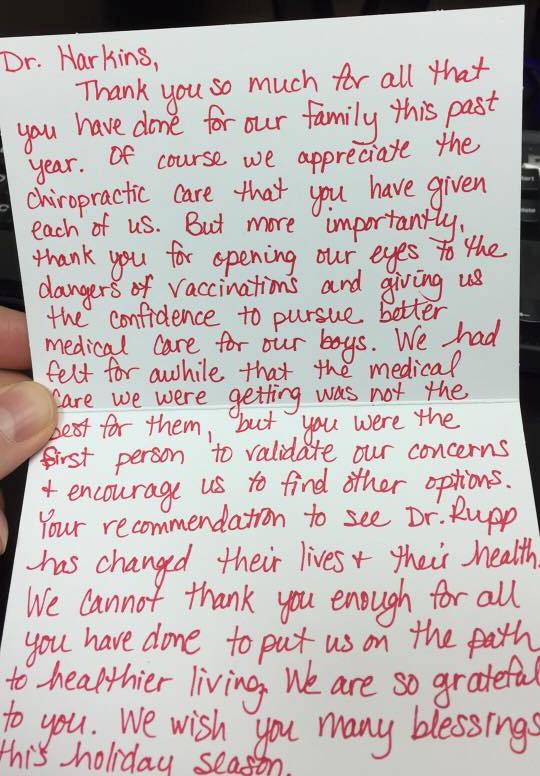 Dr. Harkins,
Thank you so much for all that
you have done for our family this past
year. Of course we appreciate the
chiropractic care that you have given
each of us. But more importantly,
thank you for opening our eyes to the
dangers of vaccinations and giving us
the confidence to pursue better
medical care for our boys. We had
felt for awhile that the medical
care we were getting was not the
best for them, but you were the
first person to validate our concerns
+ encourage us to find other options.
Your recommendation to see Dr. Rupp
has changed their lives + their health.
We cannot thank you enough for all
you have done to put us on the path
to healthier living. We are so grateful
to you. We wish you many blessings
this holiday season.